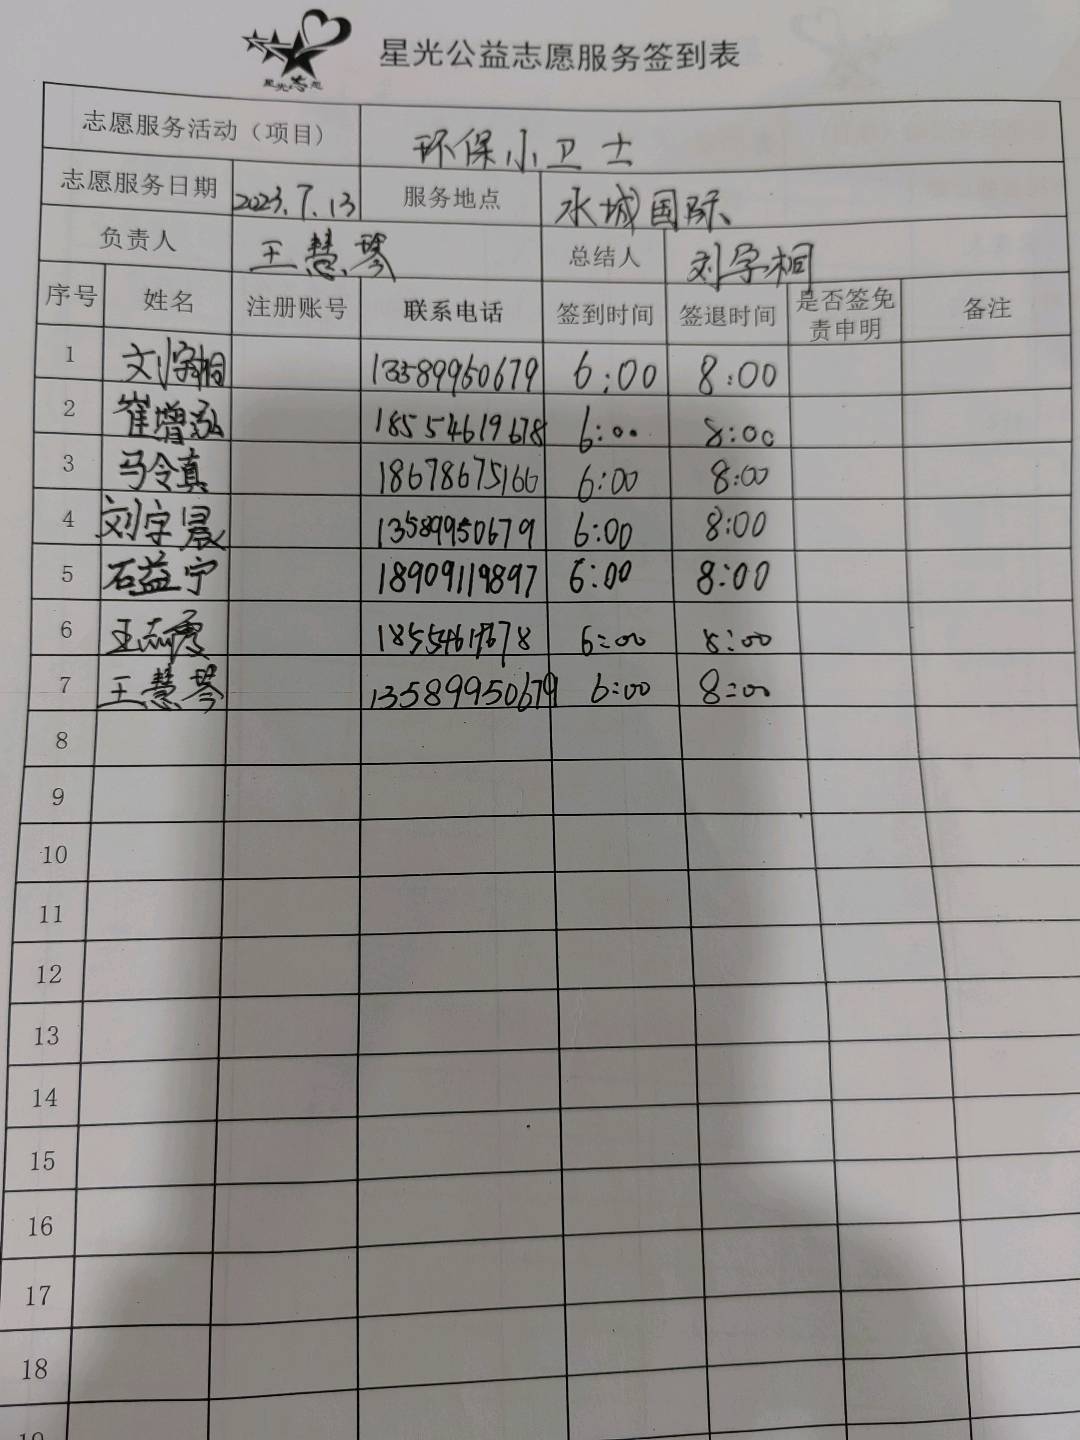 星光志愿
星光公益志愿服务签到表
志愿服务活动（项目） 环保小卫士
志愿服务日期 2023.7.13 服务地点 水城国际
负责人 王慧琴 总结人 刘宇桐
序号 姓名 注册账号 联系电话 签到时间 签退时间 是否签免责申明 备注
1 刘宇桐 13589950679 6:00 8:00
2 崔增泓 18554619678 6:00 8:00
3 马令真 18678675166 6:00 8:00
4 刘宇晨 13589950679 6:00 8:00
5 石益宁 18909119897 6:00 8:00
6 王志霞 18554619678 6:00 8:00
7 王慧琴 13589950679 6:00 8:00
8
9
10
11
12
13
14
15
16
17
18
19